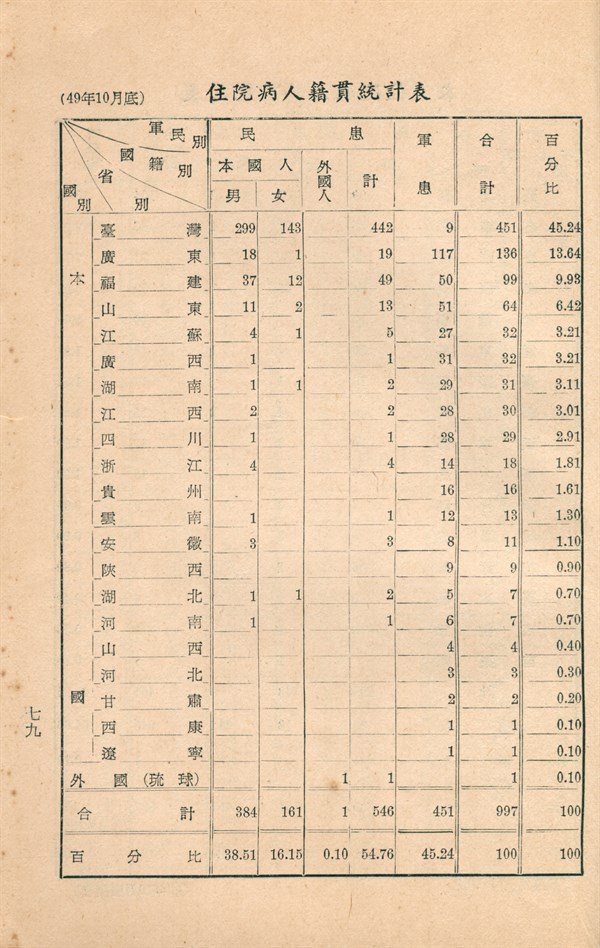 (49年10月底) 住院病人籍貫統計表
軍民別 國籍別 省別 國別 民患 軍患 合計 百分比
本國人 外國人 計
男 女
本國
臺灣 299 143 442 9 451 45.24
廣東 18 1 19 117 136 13.64
福建 37 12 49 50 99 9.93
山東 11 2 13 51 64 6.42
江蘇 4 1 5 27 32 3.21
廣西 1 1 31 32 3.21
湖南 1 1 2 29 31 3.11
江西 2 2 28 30 3.01
四川 1 1 28 29 2.91
浙江 4 4 14 18 1.81
貴州 16 16 1.61
雲南 1 1 12 13 1.30
安徽 3 3 8 11 1.10
陝西 9 9 0.90
湖北 1 1 2 5 7 0.70
河南 1 1 6 7 0.70
山西 4 4 0.40
河北 3 3 0.30
甘肅 2 2 0.20
西康 1 1 0.10
遼寧 1 1 0.10
外國(琉球) 1 1 1 0.10
合計 384 161 1 546 451 997 100
百分比 38.51 16.15 0.10 54.76 45.24 100 100
七九